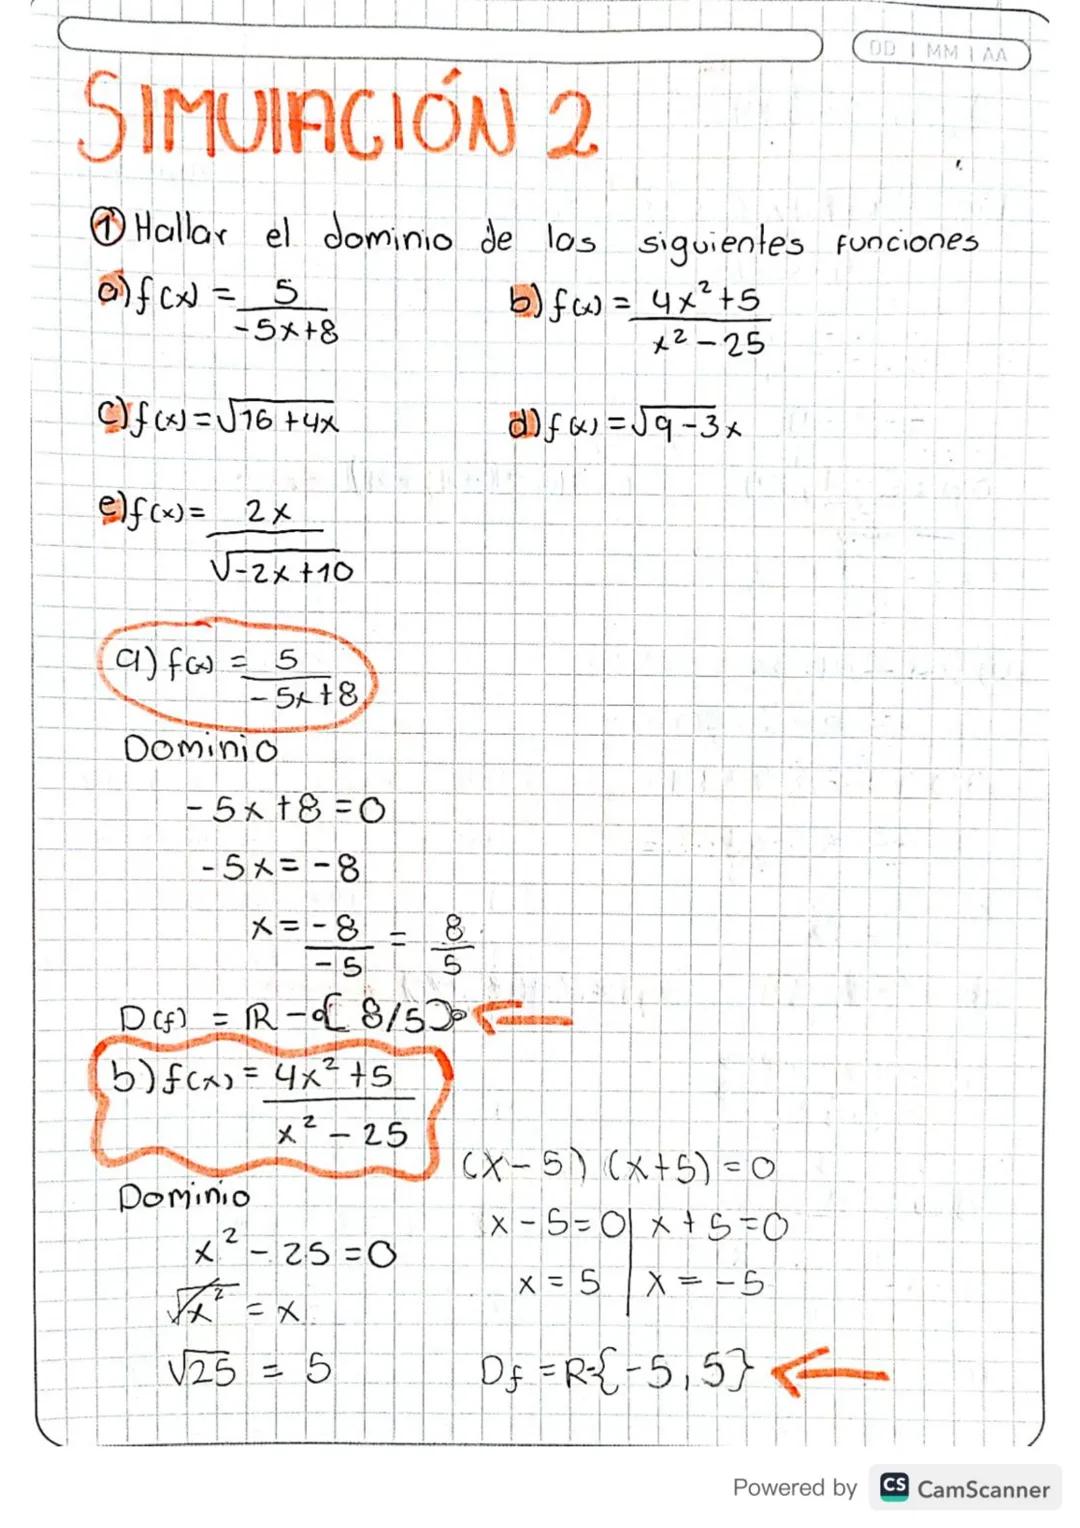 DD | MM | AA
SIMULACIÓN 2
① Hallar el dominio de las siguientes funciones
a) f(x) = 5/(-5x+8) b) f(x) = (4x²+5)/(x²-25)
c) f(x) = √(16+4x) d) f(x) = √(9-3x)
e) f(x) = 2x/√(-2x+10)
a) f(x) = 5/(-5x+8)
Dominio
-5x+8=0
-5x=-8
x = -8/-5 = 8/5
D(f) = ℝ-{8/5}
b) f(x) = (4x²+5)/(x²-25)
Dominio
x²-25=0
√x² = x
√25 = 5
(x-5) (x+5) = 0
x-5=0 | x+5=0
x=5 | x=-5
Df = R-{-5,5}
Powered by CS CamScanner